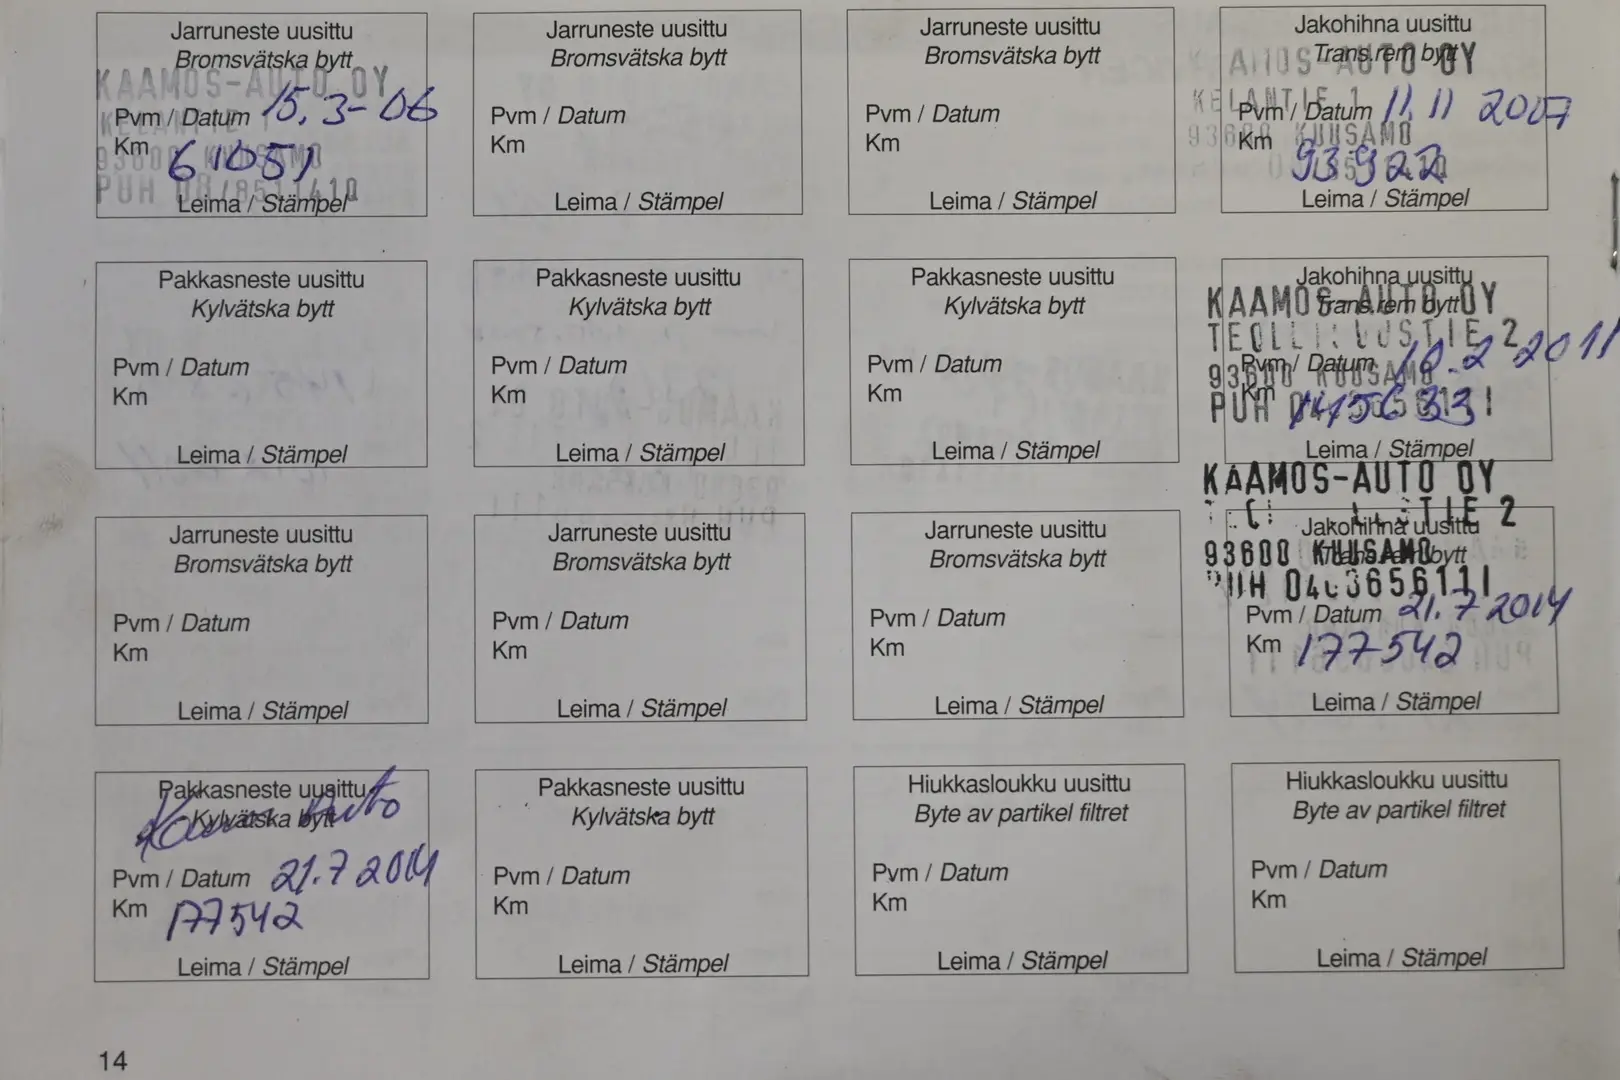 Jarruneste uusittu
Bromsvätska bytt
KAAMOS-AUTO OY
Pvm / Datum 15.3-06
KELANTIE 1
Km 61051
93600 KUUSAMO
PUH 08/8511410
Leima / Stämpel
Jarruneste uusittu
Bromsvätska bytt
Pvm / Datum
Km
Leima / Stämpel
Jarruneste uusittu
Bromsvätska bytt
Pvm / Datum
Km
Leima / Stämpel
Jakohihna uusittu
Trans.rem bytt
KAAMOS-AUTO OY
KELANTIE 1
Pvm / Datum 11.11 2007
93600 KUUSAMO
Km 93922
Leima / Stämpel
Pakkasneste uusittu
Kylvätska bytt
Pvm / Datum
Km
Leima / Stämpel
Pakkasneste uusittu
Kylvätska bytt
Pvm / Datum
Km
Leima / Stämpel
Pakkasneste uusittu
Kylvätska bytt
Pvm / Datum
Km
Leima / Stämpel
Jakohihna uusittu
Trans.rem bytt
KAAMOS-AUTO OY
2
Pvm / Datum 10.2 2011
93600 KUUSAMO
Km 145633
PUH
Leima / Stämpel
KAAMOS-AUTO OY
2
Jakohihna uusittu
Trans.rem bytt
93600 KUUSAMO
PUH 0403656111
Pvm / Datum 21.7 2014
Km 177542
Leima / Stämpel
Jarruneste uusittu
Bromsvätska bytt
Pvm / Datum
Km
Leima / Stämpel
Jarruneste uusittu
Bromsvätska bytt
Pvm / Datum
Km
Leima / Stämpel
Jarruneste uusittu
Bromsvätska bytt
Pvm / Datum
Km
Leima / Stämpel
Pakkasneste uusittu
Kylvätska bytt
Auto
Pvm / Datum 21.7 2014
Km 177542
Leima / Stämpel
Pakkasneste uusittu
Kylvätska bytt
Pvm / Datum
Km
Leima / Stämpel
Hiukkasloukku uusittu
Byte av partikel filtret
Pvm / Datum
Km
Leima / Stämpel
Hiukkasloukku uusittu
Byte av partikel filtret
Pvm / Datum
Km
Leima / Stämpel
14